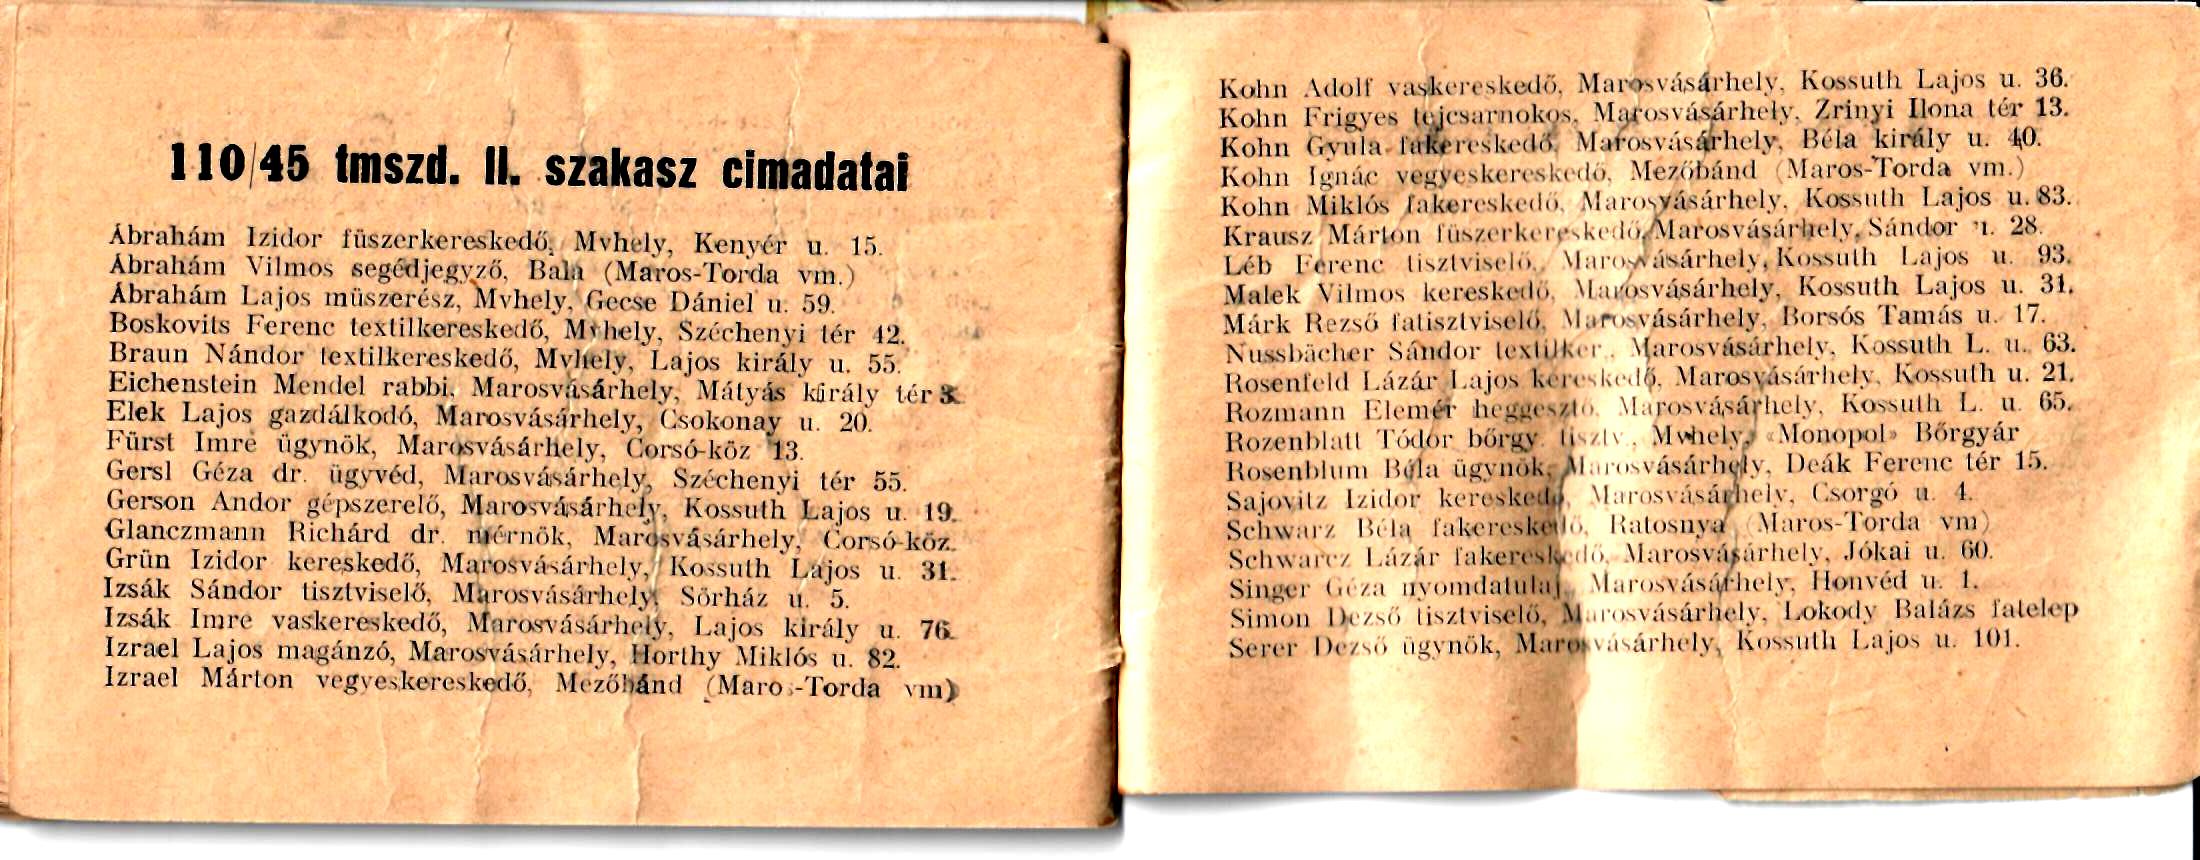 110/45 tmszd. II. szakasz cimadatai
Ábrahám Izidor füszerkereskedő, Mvhely, Kenyér u. 15.
Ábrahám Vilmos segédjegyző, Bala (Maros-Torda vm.)
Ábrahám Lajos müszerész, Mvhely, Gecse Dániel u. 59.
Boskovits Ferenc textilkereskedő, Mvhely, Széchenyi tér 42.
Braun Nándor textilkereskedő, Mvhely, Lajos király u. 55.
Eichenstein Mendel rabbi, Marosvásárhely, Mátyás király tér 3.
Elek Lajos gazdálkodó, Marosvásárhely, Csokonay u. 20.
Fürst Imre ügynök, Marosvásárhely, Corsó-köz 13.
Gersl Géza dr. ügyvéd, Marosvásárhely, Széchenyi tér 55.
Gerson Andor gépszerelő, Marosvásárhely, Kossuth Lajos u. 19.
Glanczmann Richárd dr. mérnök, Marosvásárhely, Corsó-köz.
Grün Izidor kereskedő, Marosvásárhely, Kossuth Lajos u. 31.
Izsák Sándor tisztviselő, Marosvásárhely, Sörház u. 5.
Izsák Imre vaskereskedő, Marosvásárhely, Lajos király u. 76.
Izrael Lajos magánzó, Marosvásárhely, Horthy Miklós u. 82.
Izrael Márton vegyeskereskedő, Mezőbánd (Maros-Torda vm)
Kohn Adolf vaskereskedő, Marosvásárhely, Kossuth Lajos u. 36.
Kohn Frigyes tejcsarnokos, Marosvásárhely, Zrinyi Ilona tér 13.
Kohn Gyula fakereskedő, Marosvásárhely, Béla király u. 40.
Kohn Ignác vegyeskereskedő, Mezőbánd (Maros-Torda vm.)
Kohn Miklós fakereskedő, Marosvásárhely, Kossuth Lajos u. 83.
Krausz Márton füszerkereskedő, Marosvásárhely, Sándor u. 28.
Léb Ferenc tisztviselő, Marosvásárhely, Kossuth Lajos u. 93.
Malek Vilmos kereskedő, Marosvásárhely, Kossuth Lajos u. 31.
Márk Rezső fatisztviselő, Marosvásárhely, Borsós Tamás u. 17.
Nussbächer Sándor textilker., Marosvásárhely, Kossuth L. u. 63.
Rosenfeld Lázár Lajos kereskedő, Marosvásárhely, Kossuth u. 21.
Rozmann Elemér heggesztő, Marosvásárhely, Kossuth L. u. 65.
Rozenblatt Tódor bőrgy. tisztv., Mvhely, «Monopol» Bőrgyár
Rosenblum Béla ügynök, Marosvásárhely, Deák Ferenc tér 15.
Sajovitz Izidor kereskedő, Marosvásárhely, Csorgó u. 4.
Schwarz Béla fakereskedő, Ratosnya (Maros-Torda vm)
Schwarcz Lázár fakereskedő, Marosvásárhely, Jókai u. 60.
Singer Géza nyomdatulaj, Marosvásárhely, Honvéd u. 1.
Simon Dezső tisztviselő, Marosvásárhely, Lokody Balázs fatelep
Serer Dezső ügynök, Marosvásárhely, Kossuth Lajos u. 101.